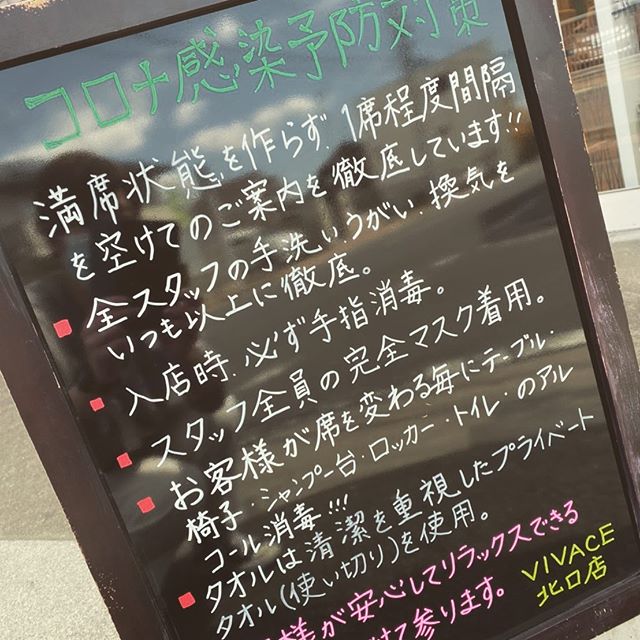 コロナ感染予防対策
満席状態を作らず、1席程度間隔
を空けてのご案内を徹底しています!!
全スタッフの手洗い、うがい、換気を
いつも以上に徹底。
入店時、必ず手指消毒。
スタッフ全員の完全マスク着用。
お客様が席を変わる毎にテーブル・
椅子・シャンプー台・ロッカー・トイレ・のアル
コール消毒!!!
タオルは清潔を重視したプライベート
タオル(使い切り)を使用。
様が安心してリラックスできる
て参ります。
VIVACE
北口店